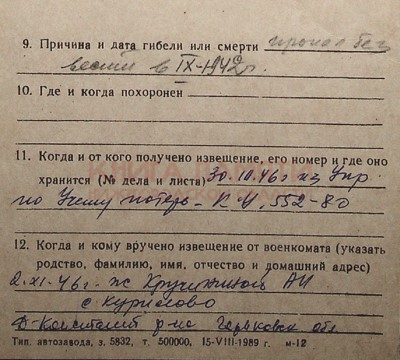 9. Причина и дата гибели или смерти пропал без
вести в IX-1942г.
10. Где и когда похоронен
11. Когда и от кого получено извещение, его номер и где оно
хранится (№ дела и листа) 30.10.46г из Упр
по Учету потерь - К-4, 552-80
12. Когда и кому вручено извещение от военкомата (указать
родство, фамилию, имя, отчество и домашний адрес)
2.XI-46г - ж Кручининой АИ
с Курилово
Д-Константин р-на Горьковск обл
Тип. автозавода, з. 5832, т. 500000, 15-VIII-1989 г. м-12